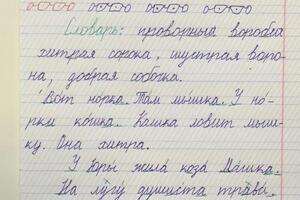 Словарь: проворный воробей
хитрая сорока, шустрая воро-
на, добрая собака.
Вот норка. Там мышка. У но-
рки кошка. Кошка ловит мыш-
ку. Она хитра.
У Юры жила коза Машка.
На лугу душиста трава.